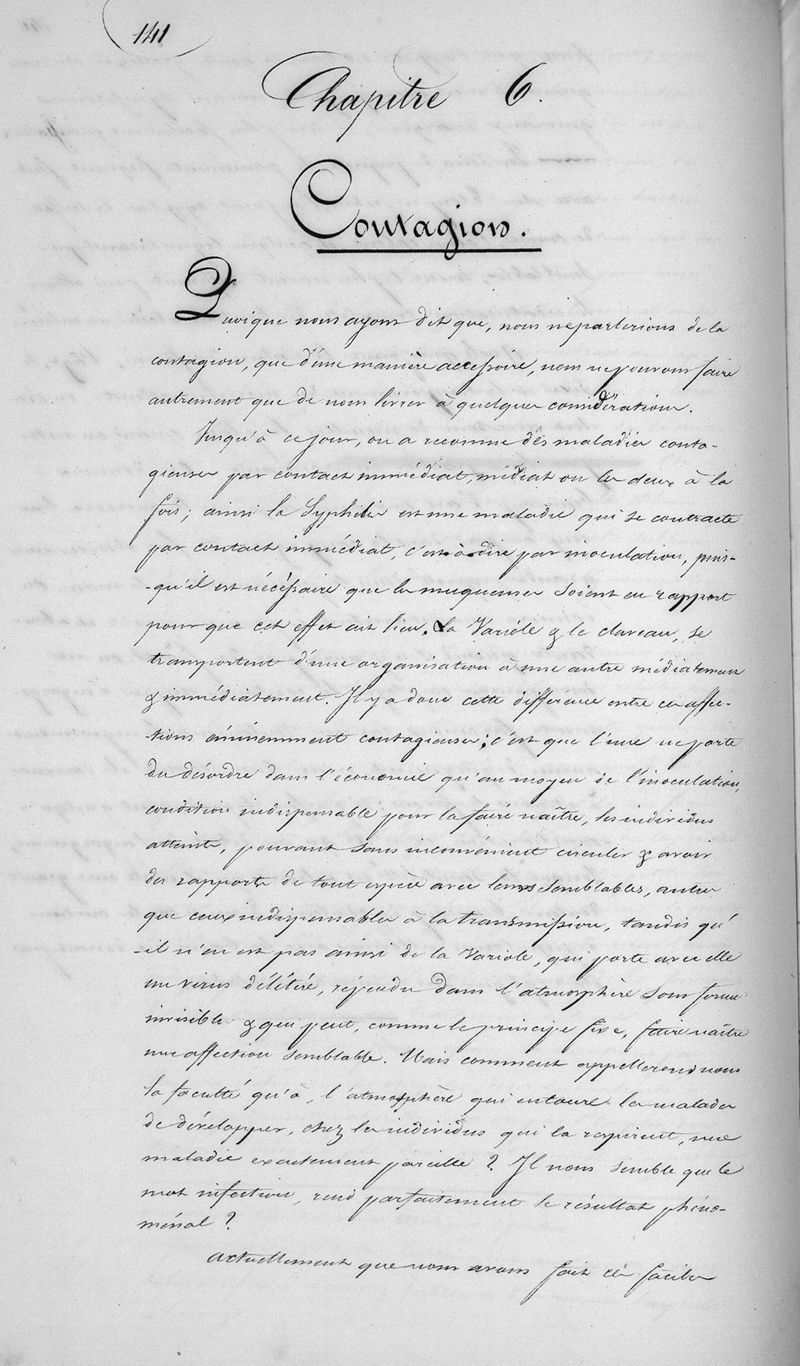 141
Chapitre 6.
Contagion.
Quoique nous ayons dit que, nous ne parlerions de la
contagion, que d'une manière accessoire, nous ne pouvons faire
autrement que de nous livrer à quelques considérations.
Jusqu'à ce jour, on a reconnu des maladies conta-
gieuses par contact immédiat, médiat ou les deux à la
fois; ainsi la Syphilis est une maladie qui se contracte
par contact immédiat, c'est à dire par inoculation, puis-
-qu'il est nécessaire que les muqueuses soient en rapport
pour que cet effet ait lieu. La Variole & le claveau, se
transportent d'une organisation à une autre médiatement
& immédiatement. Il y a donc cette différence entre ces affec-
-tions éminemment contagieuses; c'est que l'une ne porte
du désordre dans l'économie qu'au moyen de l'inoculation,
condition indispensable pour la faire naître, les individus
atteints, pouvant sans inconvénient circuler & avoir
des rapports de tout espèce avec leurs semblables, autres
que ceux indispensables à la transmission, tandis qu'
-il n'en est pas ainsi de la Variole, qui porte avec elle
un virus délétère, répandu dans l'atmosphère sous forme
invisible & qui peut, comme le principe fixe, faire naître
une affection semblable. Mais comment appellerons nous
la faculté qu'à, l'atmosphère qui entoure les malades
de développer, chez les individus qui la respirent, une
maladie exactement pareille? Il nous semble que le
mot infection, rend parfaitement le résultat phéno-
ménal?
Actuellement que nous avons fait